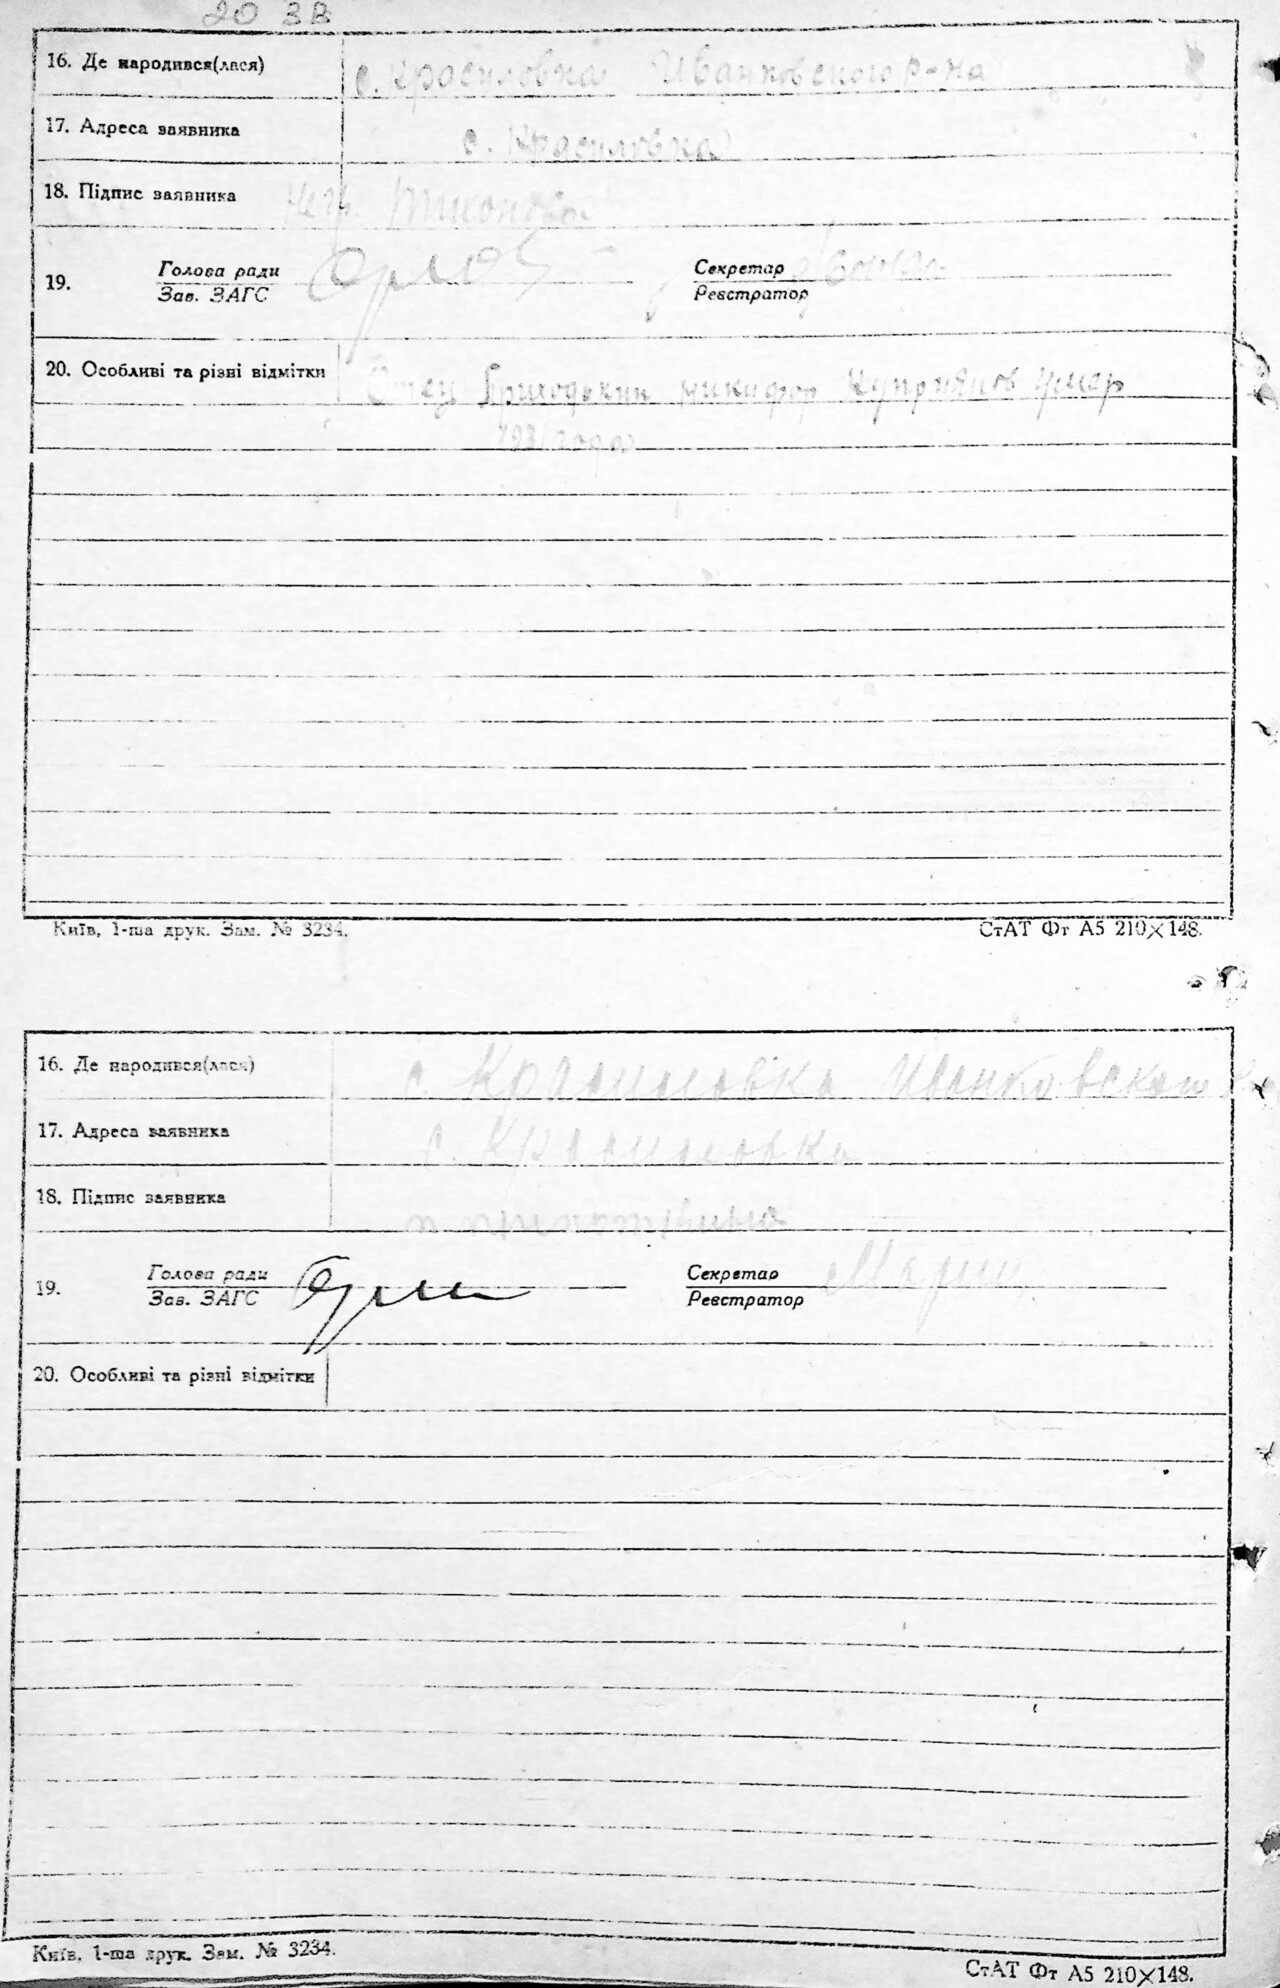 20 ЗВ
16. Де народився(лася) с. Красиловка Иванковского р-на
17. Адреса заявника с. Красиловка
18. Підпис заявника
19. Голова ради Секретар
Зав. ЗАГС Реєстратор
20. Особливі та різні відмітки Отец Приходькин Никифор Куприянов умер
1931 года
Київ, 1-ша друк. Зам. № 3234. СтАТ Фт А5 210×148.
16. Де народився(лася) с. Красиловка Иванковского
17. Адреса заявника с. Красиловка
18. Підпис заявника
19. Голова ради Секретар
Зав. ЗАГС Реєстратор
20. Особливі та різні відмітки
Київ, 1-ша друк. Зам. № 3234. СтАТ Фт А5 210×148.